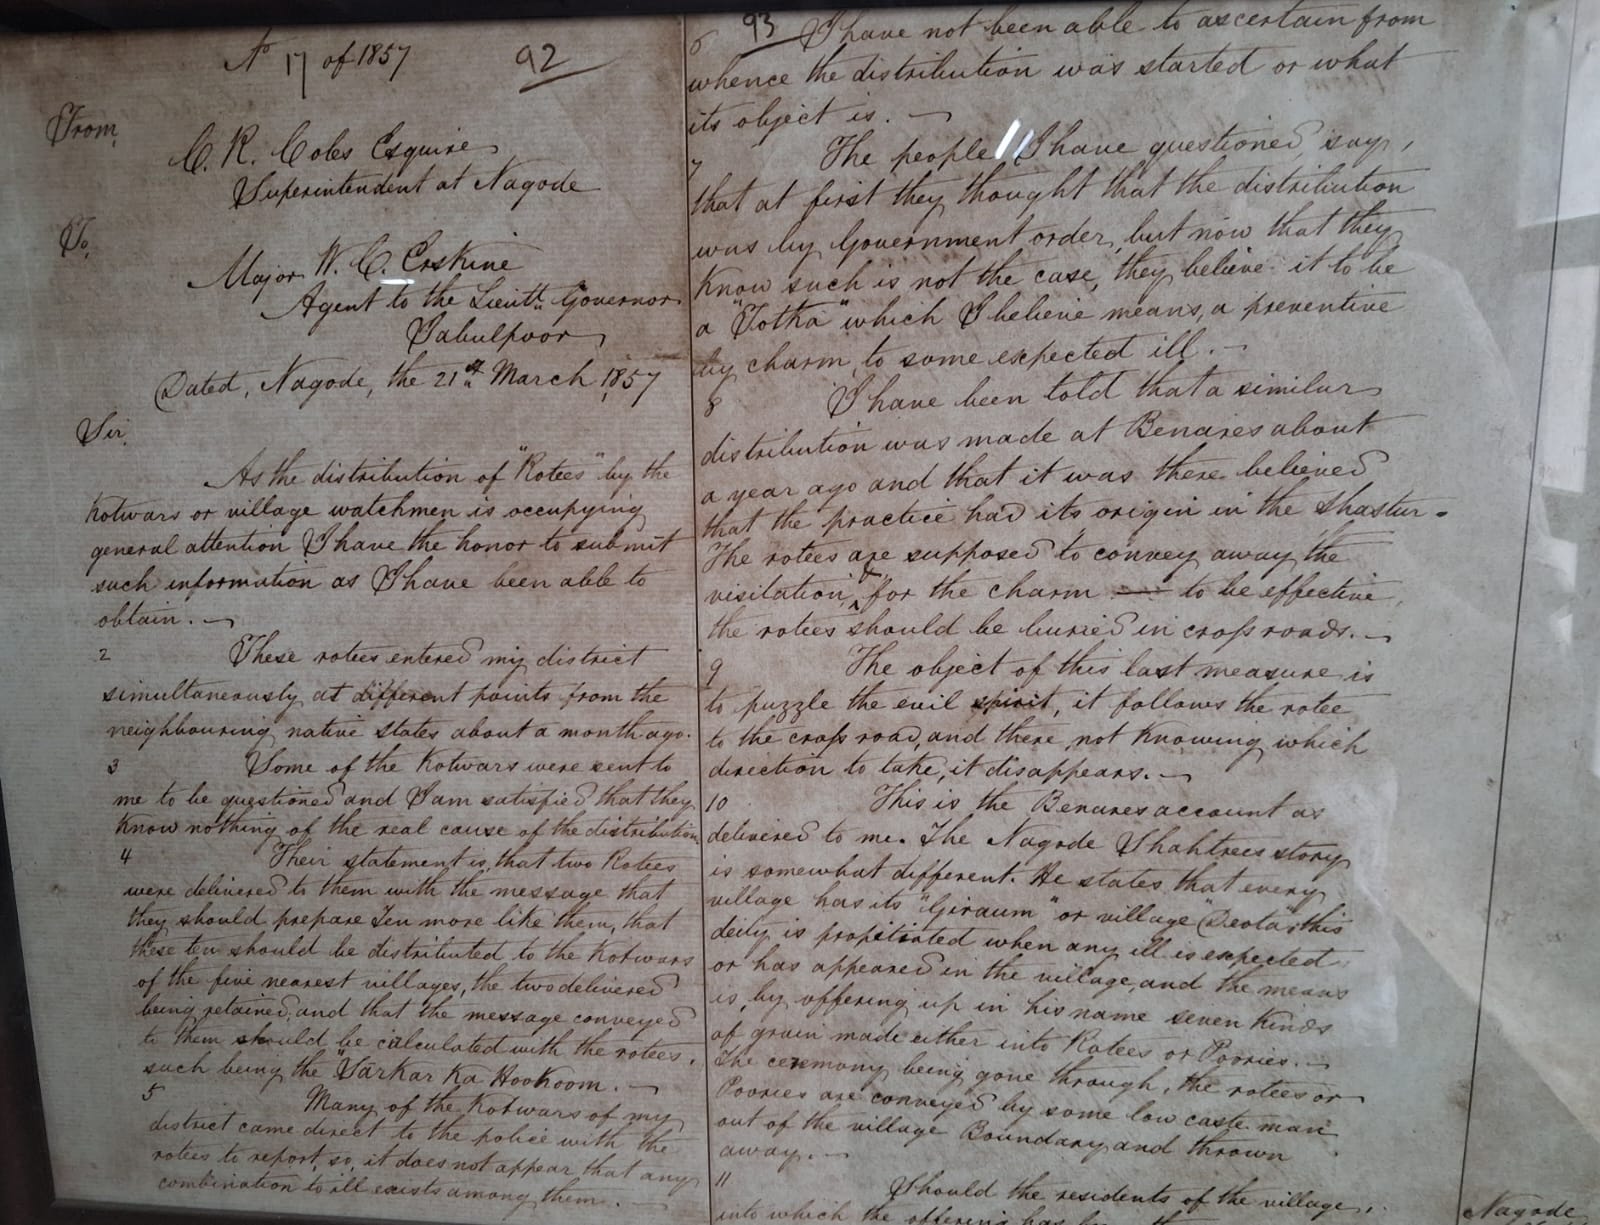 No 17 of 1857
92
From,
C. R. Coles Esquire
Superintendent at Nagode
To,
Major W. C. Erskine
Agent to the Lieutt. Governor
Jabulpoor
Dated, Nagode, the 21st March 1857
Sir,
As the distribution of "Rotees" by the
Kotwars or village watchmen is occupying
general attention I have the honor to submit
such information as I have been able to
obtain. —
2 These rotees entered my district
simultaneously at different points from the
neighbouring native states about a month ago.
3 Some of the Kotwars were sent to
me to be questioned and I am satisfied that they
know nothing of the real cause of the distribution
4 Their statement is, that two Rotees
were delivered to them with the message that
they should prepare Ten more like them, that
these ten should be distributed to the Kotwars
of the five nearest villages, the two delivered
being retained, and that the message conveyed
to them should be calculated with the rotees.
such being the "Sarkar Ka Hookoom. —
5 Many of the Kotwars of my
district came direct to the police with the
rotees to report, so, it does not appear that any
combination to ill exists among them. —
93
6 I have not been able to ascertain from
whence the distribution was started or what
its object is. —
7 The people I have questioned, say,
that at first they thought that the distribution
was by Government order, but now that they
know such is not the case, they believe it to be
a "Totka" which I believe means, a preventive
by charm, to some expected ill. —
8 I have been told that a similar
distribution was made at Benares about
a year ago and that it was there believed
that the practice had its origin in the Shastur -
The rotees are supposed to convey away the
visitation, & for the charm to be effective,
the rotees should be buried in cross roads. —
9 The object of this last measure is
to puzzle the evil spirit, it follows the rotee
to the cross road, and there, not knowing which
direction to take, it disappears. —
10 This is the Benares account as
delivered to me. The Nagode Shahtrees story
is somewhat different. He states that every
village has its "Giraum" or village "Deota" this
deity is propitiated when any ill is expected
or has appeared in the village, and the means
is, by offering up in his name seven kinds
of grain made either into Rotees or Poories. —
The ceremony being gone through, the rotees or
Poories are conveyed by some low caste man
out of the village Boundary and thrown
away. —
11 Should the residents of the village,
into which the offering has
Nagode